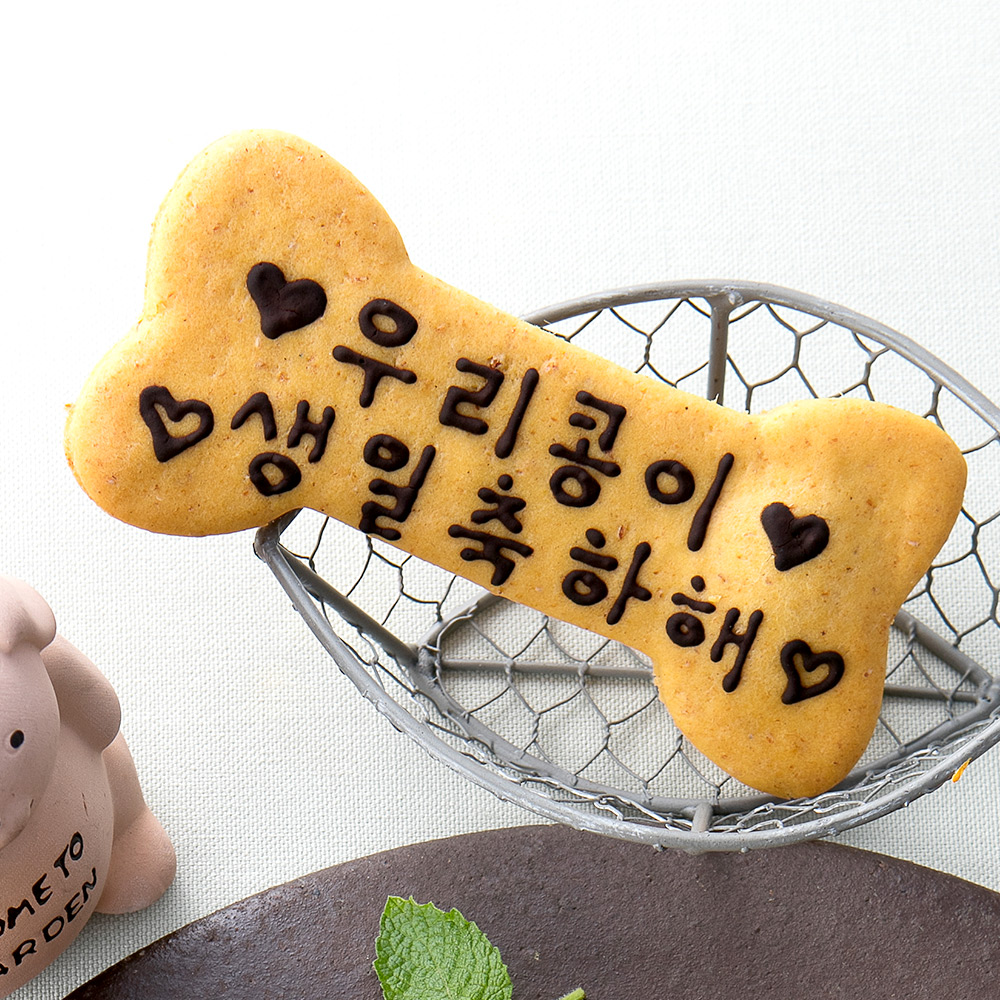 우리콩이
생일축하해
OME TO
ARDEN